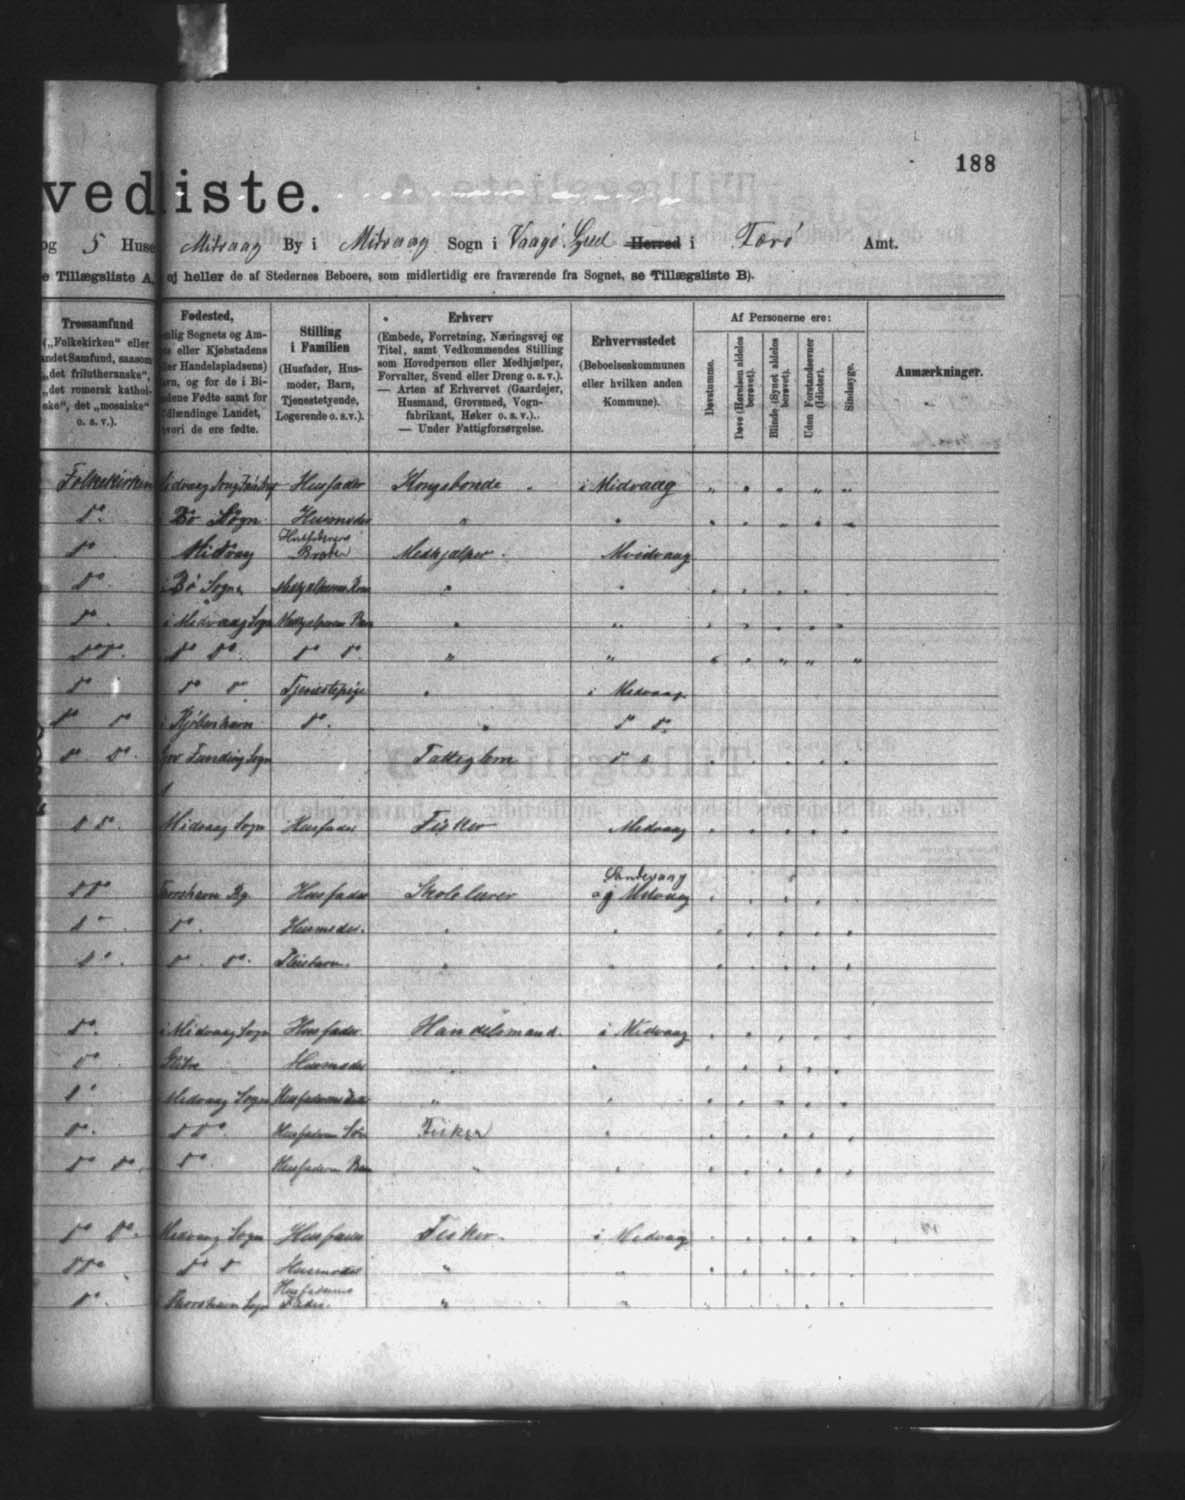 188
vedliste.
og 5 Huse Midvaag By i Midvaag Sogn i Vaagø Syssel Herred i Færø Amt.
e Tillægsliste A, ej heller de af Stedernes Beboere, som midlertidig ere fraværende fra Sognet, se Tillægsliste B).
Trossamfund
(„Folkekirken“ eller
andet Samfund, saasom
„det frilutheranske“,
„det romersk kathol-
ske“, det „mosaiske“
o. s. v.).
Fødested,
nlig Sognets og Am-
ts eller Kjøbstadens
ler Handelspladsens)
avn, og for de i Bi-
dene Fødte samt for
dlændinge Landet,
vori de ere fødte.
Stilling
i Familien
(Husfader, Hus-
moder, Barn,
Tjenestetyende,
Logerende o.s.v.).
Erhverv
(Embede, Forretning, Næringsvej og
Titel, samt Vedkommendes Stilling
som Hovedperson eller Medhjælper,
Forvalter, Svend eller Dreng o. s. v.).
— Arten af Erhvervet (Gaardejer,
Husmand, Grovsmed, Vogn-
fabrikant, Høker o. s. v.)..
— Under Fattigforsørgelse.
Erhvervsstedet
(Beboelseskommunen
eller hvilken anden
Kommune).
Af Personerne ere:
Døvstumme.
Døve (Hørelsen aldeles
berøvet).
Blinde (Synet aldeles
berøvet).
Uden Forstandsevner
(Idioter).
Sindssyge.
Anmærkninger.
Folkekirken Husfader Kongsbonde i Midvaag
do. i Bø Sogn Husmoder "
do Midvaag Husfaderens Broder Medhjælper. Midvaag
do. i Bø Sogn "
do. i Midvaag Sogn "
do do. do do. do do. " "
do do do Tjenestepige " i Midvaag
do do i Kjøbenhavn do. " do do.
do. do. Sogn Fattiglem do "
do do. Midvaag Sogn Husfader Fisker Midvaag
do do Thorshavn Husfader Skolelærer Sandevaag og Midvaag
do. do. Husmoder. "
do. do. do. Pleiebarn. "
do. i Midvaag Sogn Husfader Handelsmand. i Midvaag
do. Husmoder "
do Midvaag Sogn "
do. do do. Husfaderens Søn Fisker "
do do. do. Husfaderens "
do do. Midvaag Sogn Husfader Fisker. i Midvaag
do do do do Husmoder " "
do. Thorshavn Sogn Husfaderens Fader. " "